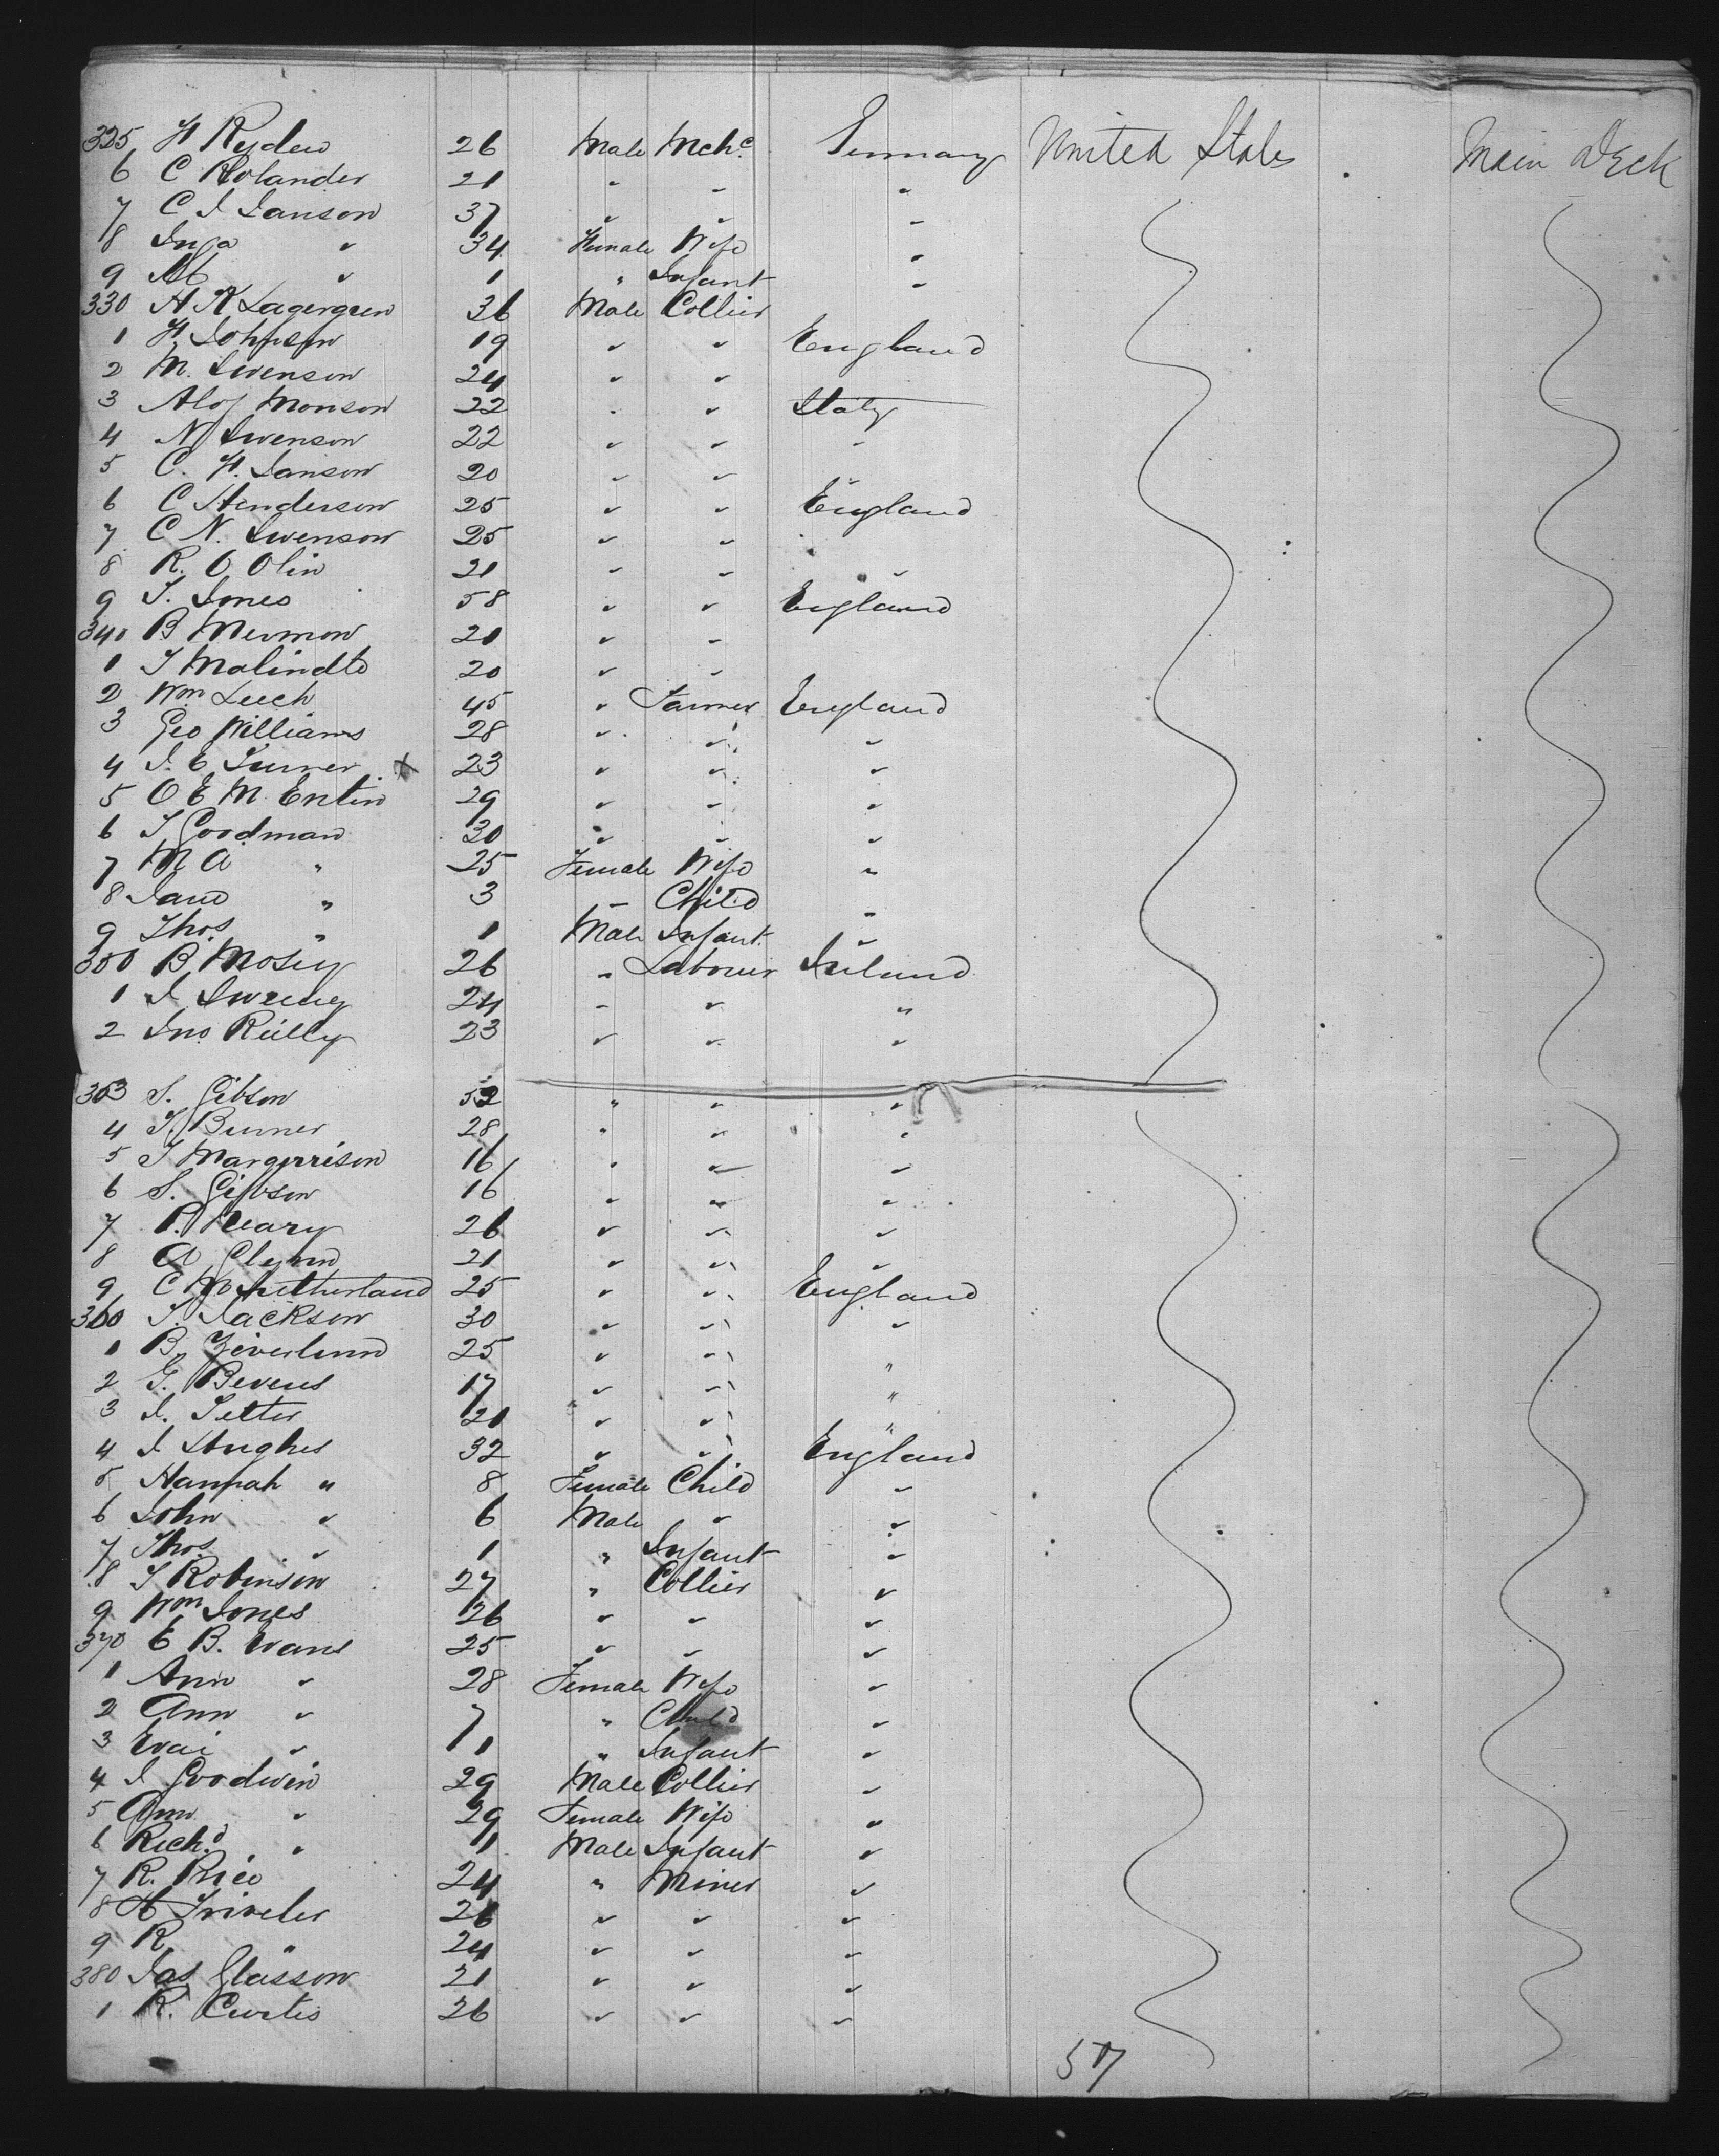 325 H Ryden 26 Male Mchc. Germany United States Main Deck
6 C Rolander 21 " " "
7 C J Janson 37 " " "
8 Inga " 34 Female Wife "
9 " 1 " Infant "
330 A K Lagergren 36 Male Collier
1 H Johnson 19 " " England
2 M. Swenson 24 " "
3 Alof Monson 22 " " Italy
4 N Swenson 22 " " "
5 C. H. Janson 20 " " "
6 C Henderson 25 " " England
7 C N. Swenson 25 " "
8 R. O Olin 21 " " "
9 T. Jones 58 " " England
340 B 20 " "
1 T 20 " "
2 Wm Leech 45 " Farmer England
3 Geo Williams 28 " " "
4 J. C Turner x 23 " " "
5 O E M. Entin 29 " " "
6 T Goodman 30 " " "
7 M A " 25 Female Wife "
8 Jane " 3 " Child "
9 Thos. " 1 Male Infant "
350 B. 26 " Labourer Ireland
1 J 24 " " "
2 Jno. Reilly 23 " " "
353 S. Gibson 52 " " "
4 T. Burner 28 " " "
5 T Margerrison 16 " " "
6 S. Gibson 16 " " "
7 P. Neary 26 " " "
8 A Glynn 21 " " "
9 C M Sutherland 25 " " England
360 T. Jackson 30 " " "
1 B. Ziverlund 25 " " "
2 G. Bevens 17 " " "
3 J. Tetter 21 " " "
4 J Hughes 32 " " England
5 Hannah " 8 Female Child "
6 John " 6 Male " "
7 Thos. " 1 " Infant "
8 T Robinson 27 " Collier "
9 Wm Jones 26 " " "
370 E B. Evans 25 " " "
1 Ann " 28 Female Wife "
2 Ann " 7 " Child "
3 Evai " 1 " Infant "
4 J Goodwin 29 Male Collier "
5 Ann " 29 Female Wife "
6 Richd. " 1 Male Infant "
7 R. Price 24 " Miner "
8 H Triveler 26 " " "
9 R " 24 " " "
380 Jas Glasson 21 " " "
1 R. Curtis 26 " " "
57